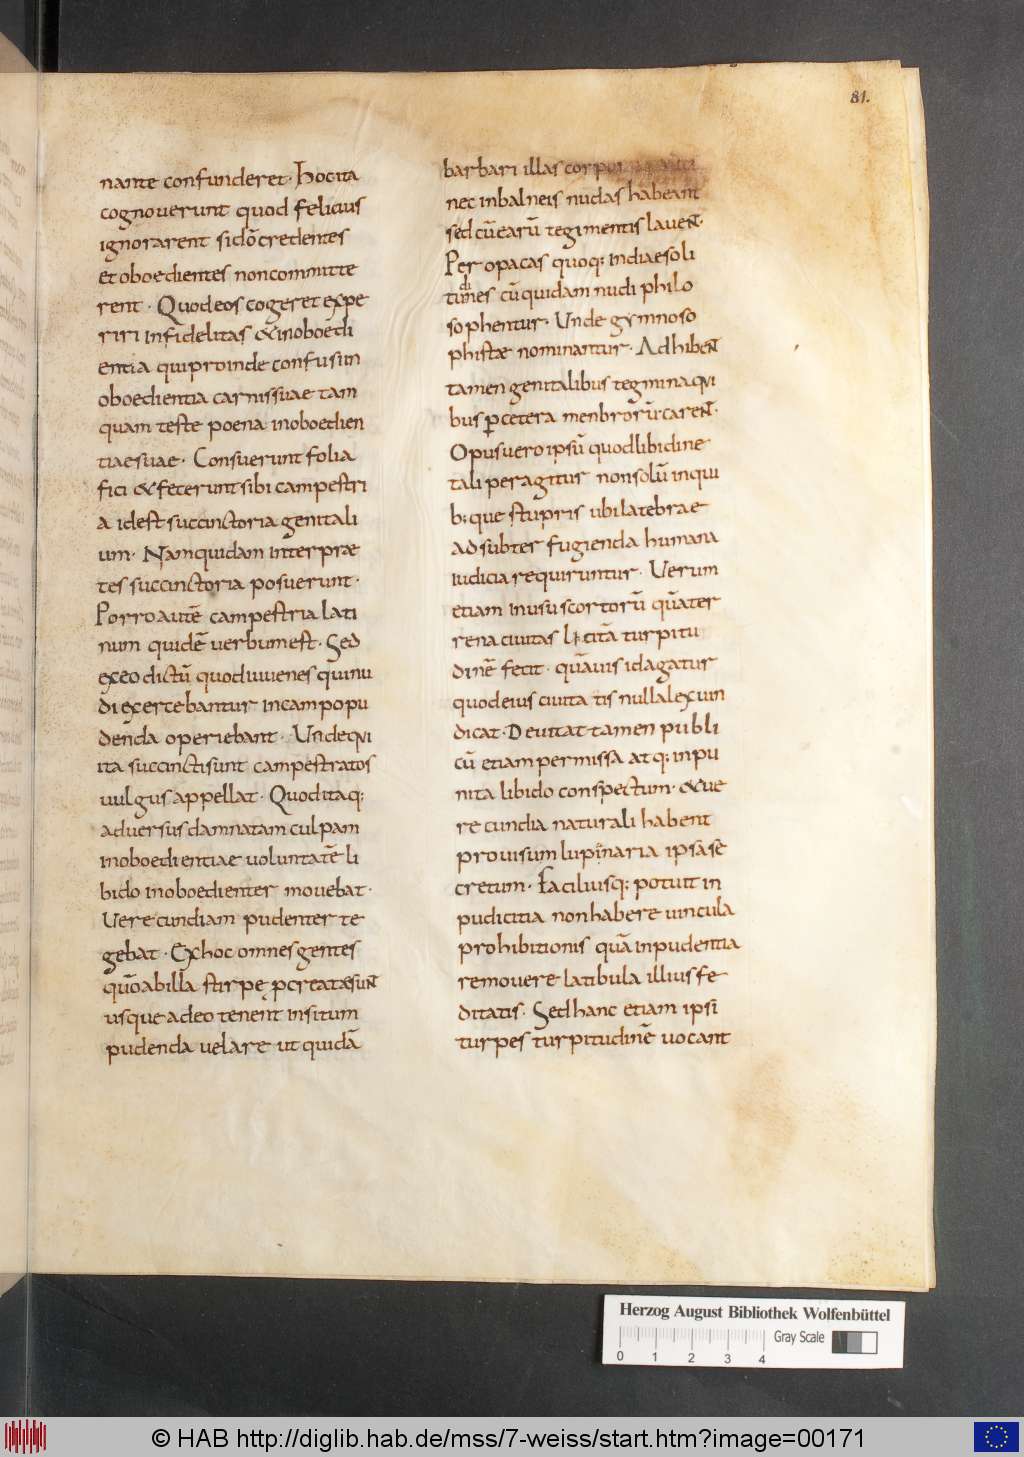 81.
nante confunderet· Hoc ita
cognouerunt quod felicius
ignorarent si dō credentes
et oboedientes non committe
rent· Quod eos cogeret expe
riri infidelitas & inoboedi
entia qui proinde confusi in
oboedientia carnis suae tam
quam teste poena inoboedien
tiae suae· Consuerunt folia
fici & fecerunt sibi campestri
a id est succinctoria genitali
um· Nam quidam interpræ
tes succinctoria posuerunt·
Porro autē campestria lati
num quidē uerbum est· Sed
ex eo dictū quod iuuenes qui nu
di exercebantur in campo pu
denda operiebant· Unde qui
ita succincti sunt campestratos
uulgus appellat· Quod itaq;
aduersus damnatam culpam
inoboedientiae uoluntatē li
bido inoboedienter mouebat·
Uerecundiam pudenter te
gebat· Ex hoc omnes gentes
qūo ab illa stirpe pcreatæ sunt
usque adeo tenent insitum
pudenda uelare ut quidā
barbari illas
nec in balneis nudas habeant
sed cū earū tegimentis lauent·
Per opacas quoq; indiae soli
tudines cū quidam nudi philo
sophentur· Unde gymnoso
phistæ nominantur· Adhibent
tamen genitalibus tegmina qui
bus p cetera menbrorū carent·
Opus uero ipsū quod libidine
tali peragitur non solū in qui
b;que stupris ubi latebrae
ad subterfugienda humana
iudicia requiruntur· Uerum
etiam in usu scortorū quā ter
rena ciuitas licitā turpitu
dinē fecit· quāuis id agatur
quod eius ciuitatis nulla lex uin
dicat· Deuitat tamen publi
cū etiam permissa atq; inpu
nita libido conspectum· & ue
recundia naturali habent
prouisum lupinaria ipsa se
cretum· Faciliusq; potuit in
pudicitia non habere uincula
prohibitionis quā inpudentia
remouere latibula illius fe
ditatis· Sed hanc etiam ipsi
turpes turpitudinē uocant
Herzog August Bibliothek Wolfenbüttel
Gray Scale
0 1 2 3 4
© HAB http://diglib.hab.de/mss/7-weiss/start.htm?image=00171